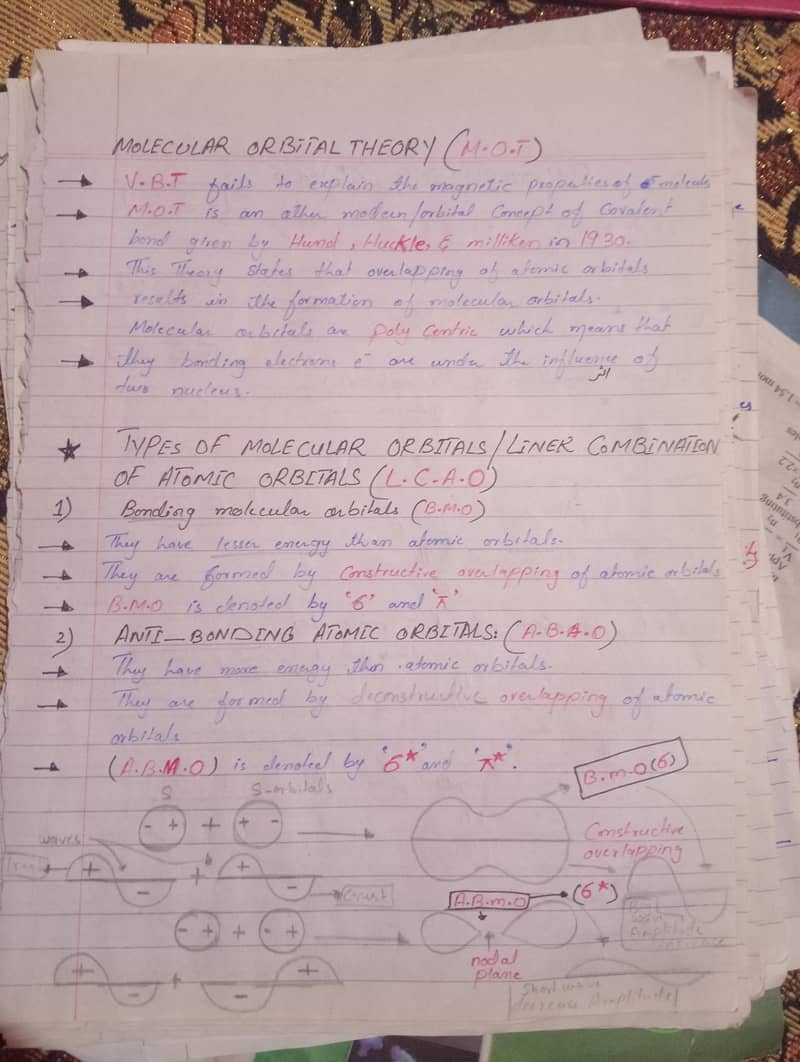 MOLECULAR ORBITAL THEORY (M.O.T)
→ V.B.T fails to explain the magnetic properties of molecule
→ M.O.T is an other modern/orbital Concept of Covalent
bond given by Hund, Huckle, & milliken in 1930.
→ This Theory States that overlapping of atomic orbitals
→ results in the formation of molecular orbitals.
Molecular orbitals are Poly Centric which means that
→ they bonding electrons e⁻ are under the influence of
اثر
two nucleus.
★ TYPES OF MOLECULAR ORBITALS/LINER COMBINATION
OF ATOMIC ORBITALS (L.C.A.O)
1) Bonding molecular orbitals (B.M.O)
→ They have lesser energy than atomic orbitals.
→ They are formed by Constructive overlapping of atomic orbitals
→ B.M.O is denoted by '6' and 'π'
2) ANTI-BONDING ATOMIC ORBITALS: (A.B.A.O)
→ They have more energy then atomic orbitals.
→ They are formed by deconstructive overlapping of atomic
orbitals
→ (A.B.M.O) is denoted by '6*' and 'π*'.
S S-orbitals B.m.O(6)
- + + + - →
waves Constructive
overlapping
+ - + + -
Crust
A.B.m.O → (6*)
- + + - + →
Amplitude
nodal
plane
+ - + - +
Short wave
decrease Amplitude